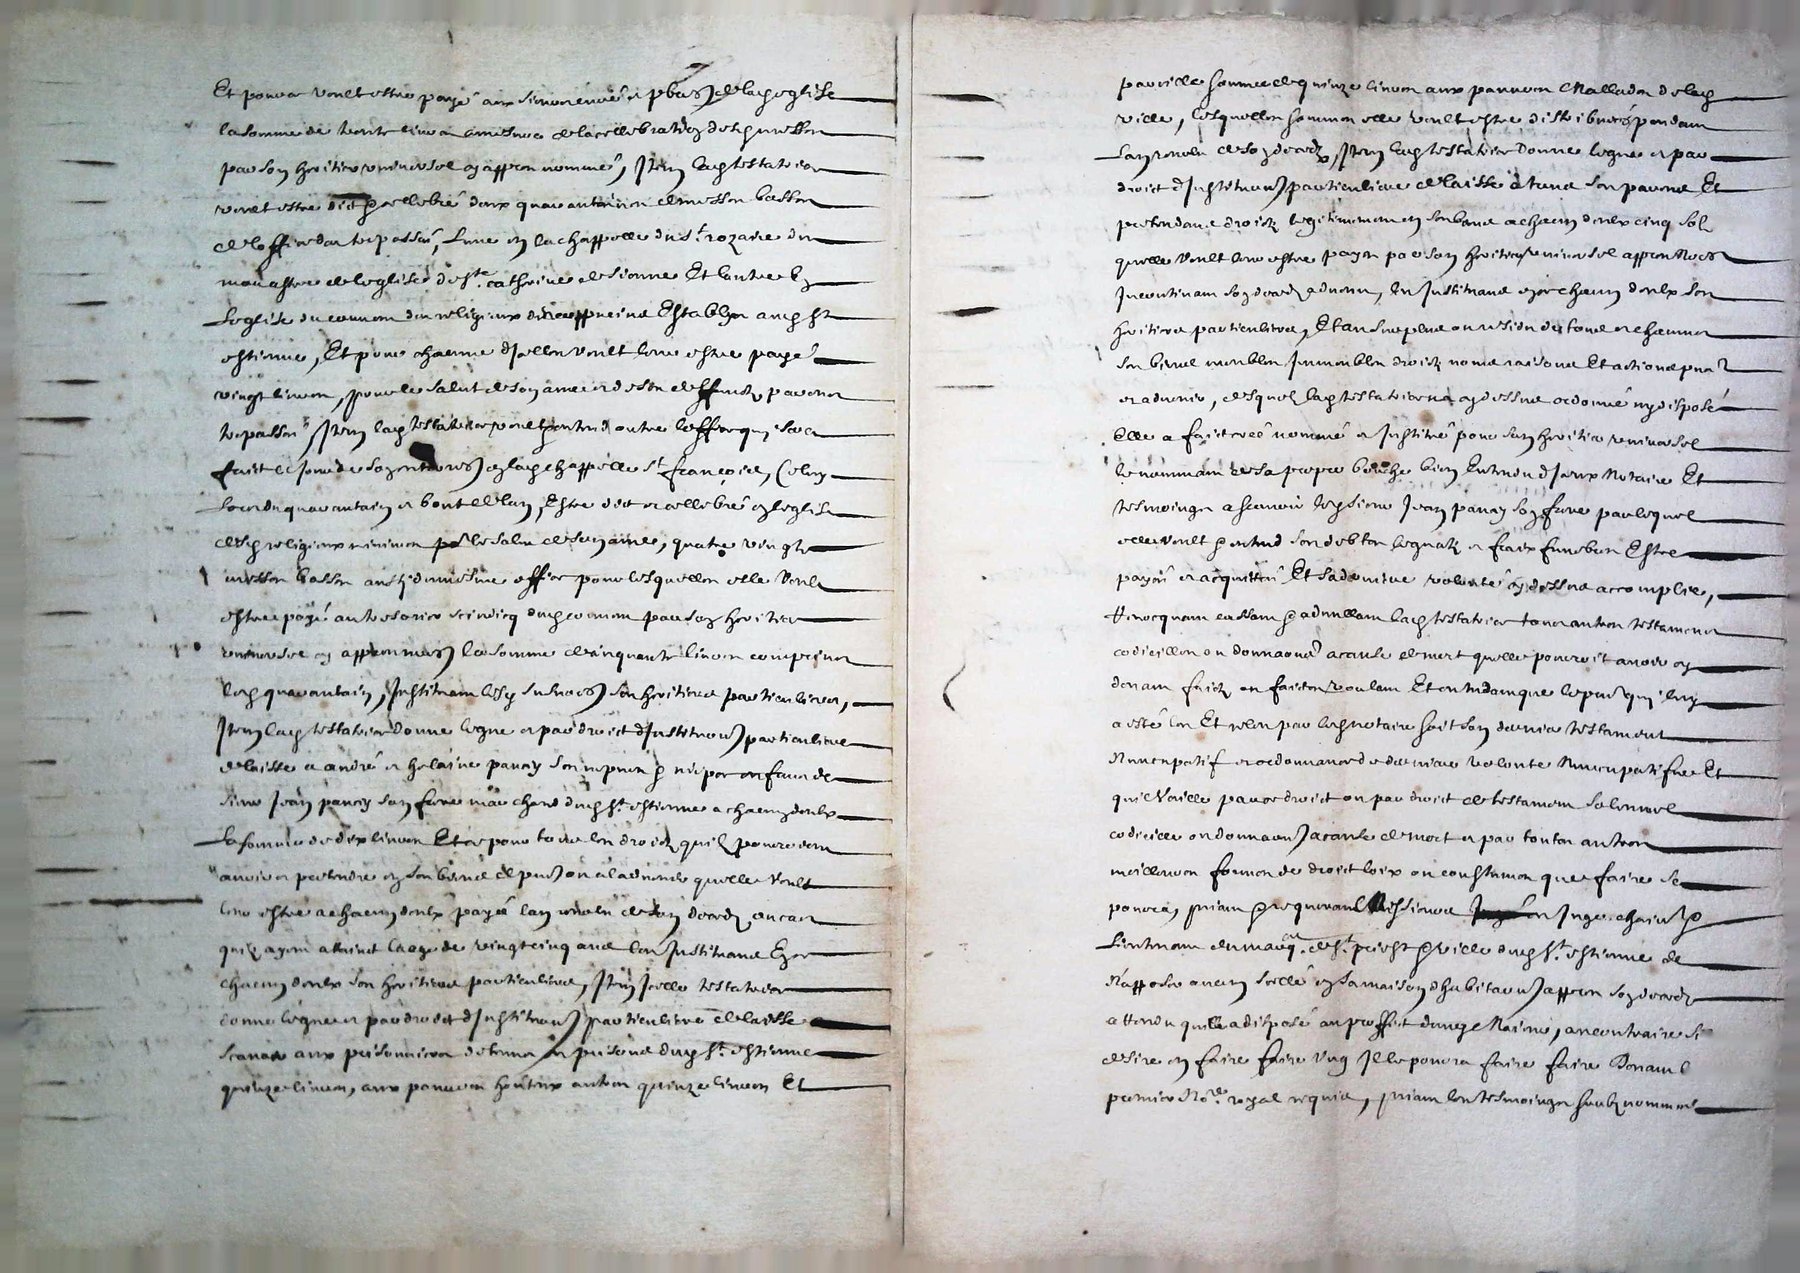 Et pour ce veult estre payé aux sieurs curé et pbres de lad eglise
la somme de trente livres a mesure de la cellebration desd messes
par son heritier universel cy appres nommé, Item lad testatrice
veult estre dict & cellebré deux quarantaines de messes basses
de loffice des trespassés, lune en la chappelle du St rozaire du
monastere de leglise de Ste catherine de sienne Et lautre en
leglise du couvent des religieux Establys aud St
estienne, Et pour chacune dicelles veult leur estre payé
vingt livres, pour le salut de son ame et de ses deffunctz parens
trespassés, Item lad testatrice veult & entend outre loffice qui sera
faict le jour de son en lad chappelle St françois, Celuy
de quarantain et bout de lan, Estre dict et cellebré en leglise
desd religieux minimes po le salut de son ame, quatre vingtz
messes basses aussy du mesme office pour lesquelles elle veult
estre payé au scindicq dud couvent par son heritier
universel cy appres nommé la somme de cinquante livres comprins
led quarantain, Instituant lesd susnommés ses heritiers particuliers,
Item lad testatrice donne legue et par droict dinstitution particuliere
delaisse a andré et helaine pancy ses nepveu & niepce enfans de
sieur Jean pancy son frere marchand dud St estienne a chacun deulx
la somme de dix livres Et ce pour tous les droictz quilz pourroient
avoir et pretendre en ses biens et a ladvenir quelle veult
leur estre a chacun deulx payé lan revolu de son decedz, en cas
quilz ayent attainct laage de vingt cinq ans les Instituant
chacun deulx ses heritiers particuliers, Item Icelle testatrice
donne legue et par droict dinstitution particuliere delaisse
scavoir aux prisonniers detenus es prisons dud St estienne
quinze livres, aux pauvres honteux autres quinze livres Et
pareille somme de quinze livres aux pauvres Mallades de lad
ville, lesquelles sommes elle veult estre distribuées pendant
lan revolu de son decedz, Item lad testatrice donne legue et par
droict dinstitution particuliere delaisse a tous ses parens Et
pretendans droictz legitimement en ses biens a chacun deulx cinq solz
quelle veult leur estre payés par son heritier universel appres Nommé
Incontinant son decedz advenu, les Instituant chacun deulx ses
heritiers particuliers, Et au surplus ou residu de tous et chacuns
ses biens meubles Immeubles droictz noms raisons Et actions
et advenir, desquelz lad testatrice na cy dessus ordonné ny disposé
Elle a faict creé nommé et Institué pour son heritier universel
le nommant de sa propre bouche bien Entendu dIceux Notaire Et
tesmoings a scavoir led sieur Jean pancy son frere par lequel
elle veult & entend ses debtes legatz et fraix funebres Estre
payés et acquittés Et sa derniere volonté cy dessus accomplie,
Revocquant cassant & adnullant lad testatrice tous autres testamens
codicilles ou donnaons a cause de mort quelle pourroit avoir cy
devant faictz ou faictes voulant Et entendant que le pnt qui luy
a esté leu Et releu par led notaire soit son dernier testament
Nuncupatif et ordonnance de derniere volonté Nuncupatifve Et
quil vaille par ce droict ou par droict de testament solennel
codicille ou donnaon a cause de mort et par toutes autres
meilleures formes de droict loix ou coustumes que faire se
pourra, priant & requerant Messieurs les Juge chastelain &
Lieutenant du marqat de St priest & ville dud St estienne de
Napposer aucun scellé en sa maison dhabitaon appres son decedz
attendu quelle a disposé au proffict dung Maieur, au contraire si
desire en faire faire ung Il le pourra faire faire devant le
premier Nore royal requis, priant les tesmoings soubz nommés